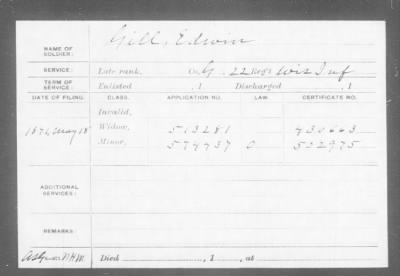 NAME OF SOLDIER: Gill, Edwin
SERVICE: Late rank, Co. G. 22 Reg't Wis Inf
TERM OF SERVICE: Enlisted , 1 Discharged , 1
DATE OF FILING. CLASS. APPLICATION NO. LAW. CERTIFICATE NO.
Invalid,
1891, May 18 Widow, 513281
Minor, 574737 522975
ADDITIONAL SERVICES:
REMARKS:
Died , 1 , at